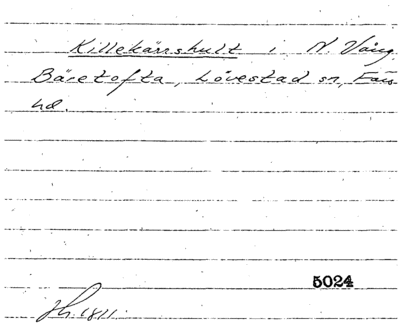 Killekärrshult i N. Vång
Bäretofta, Lövestad sn, Färs
hd.
5024
Jh. 1811.